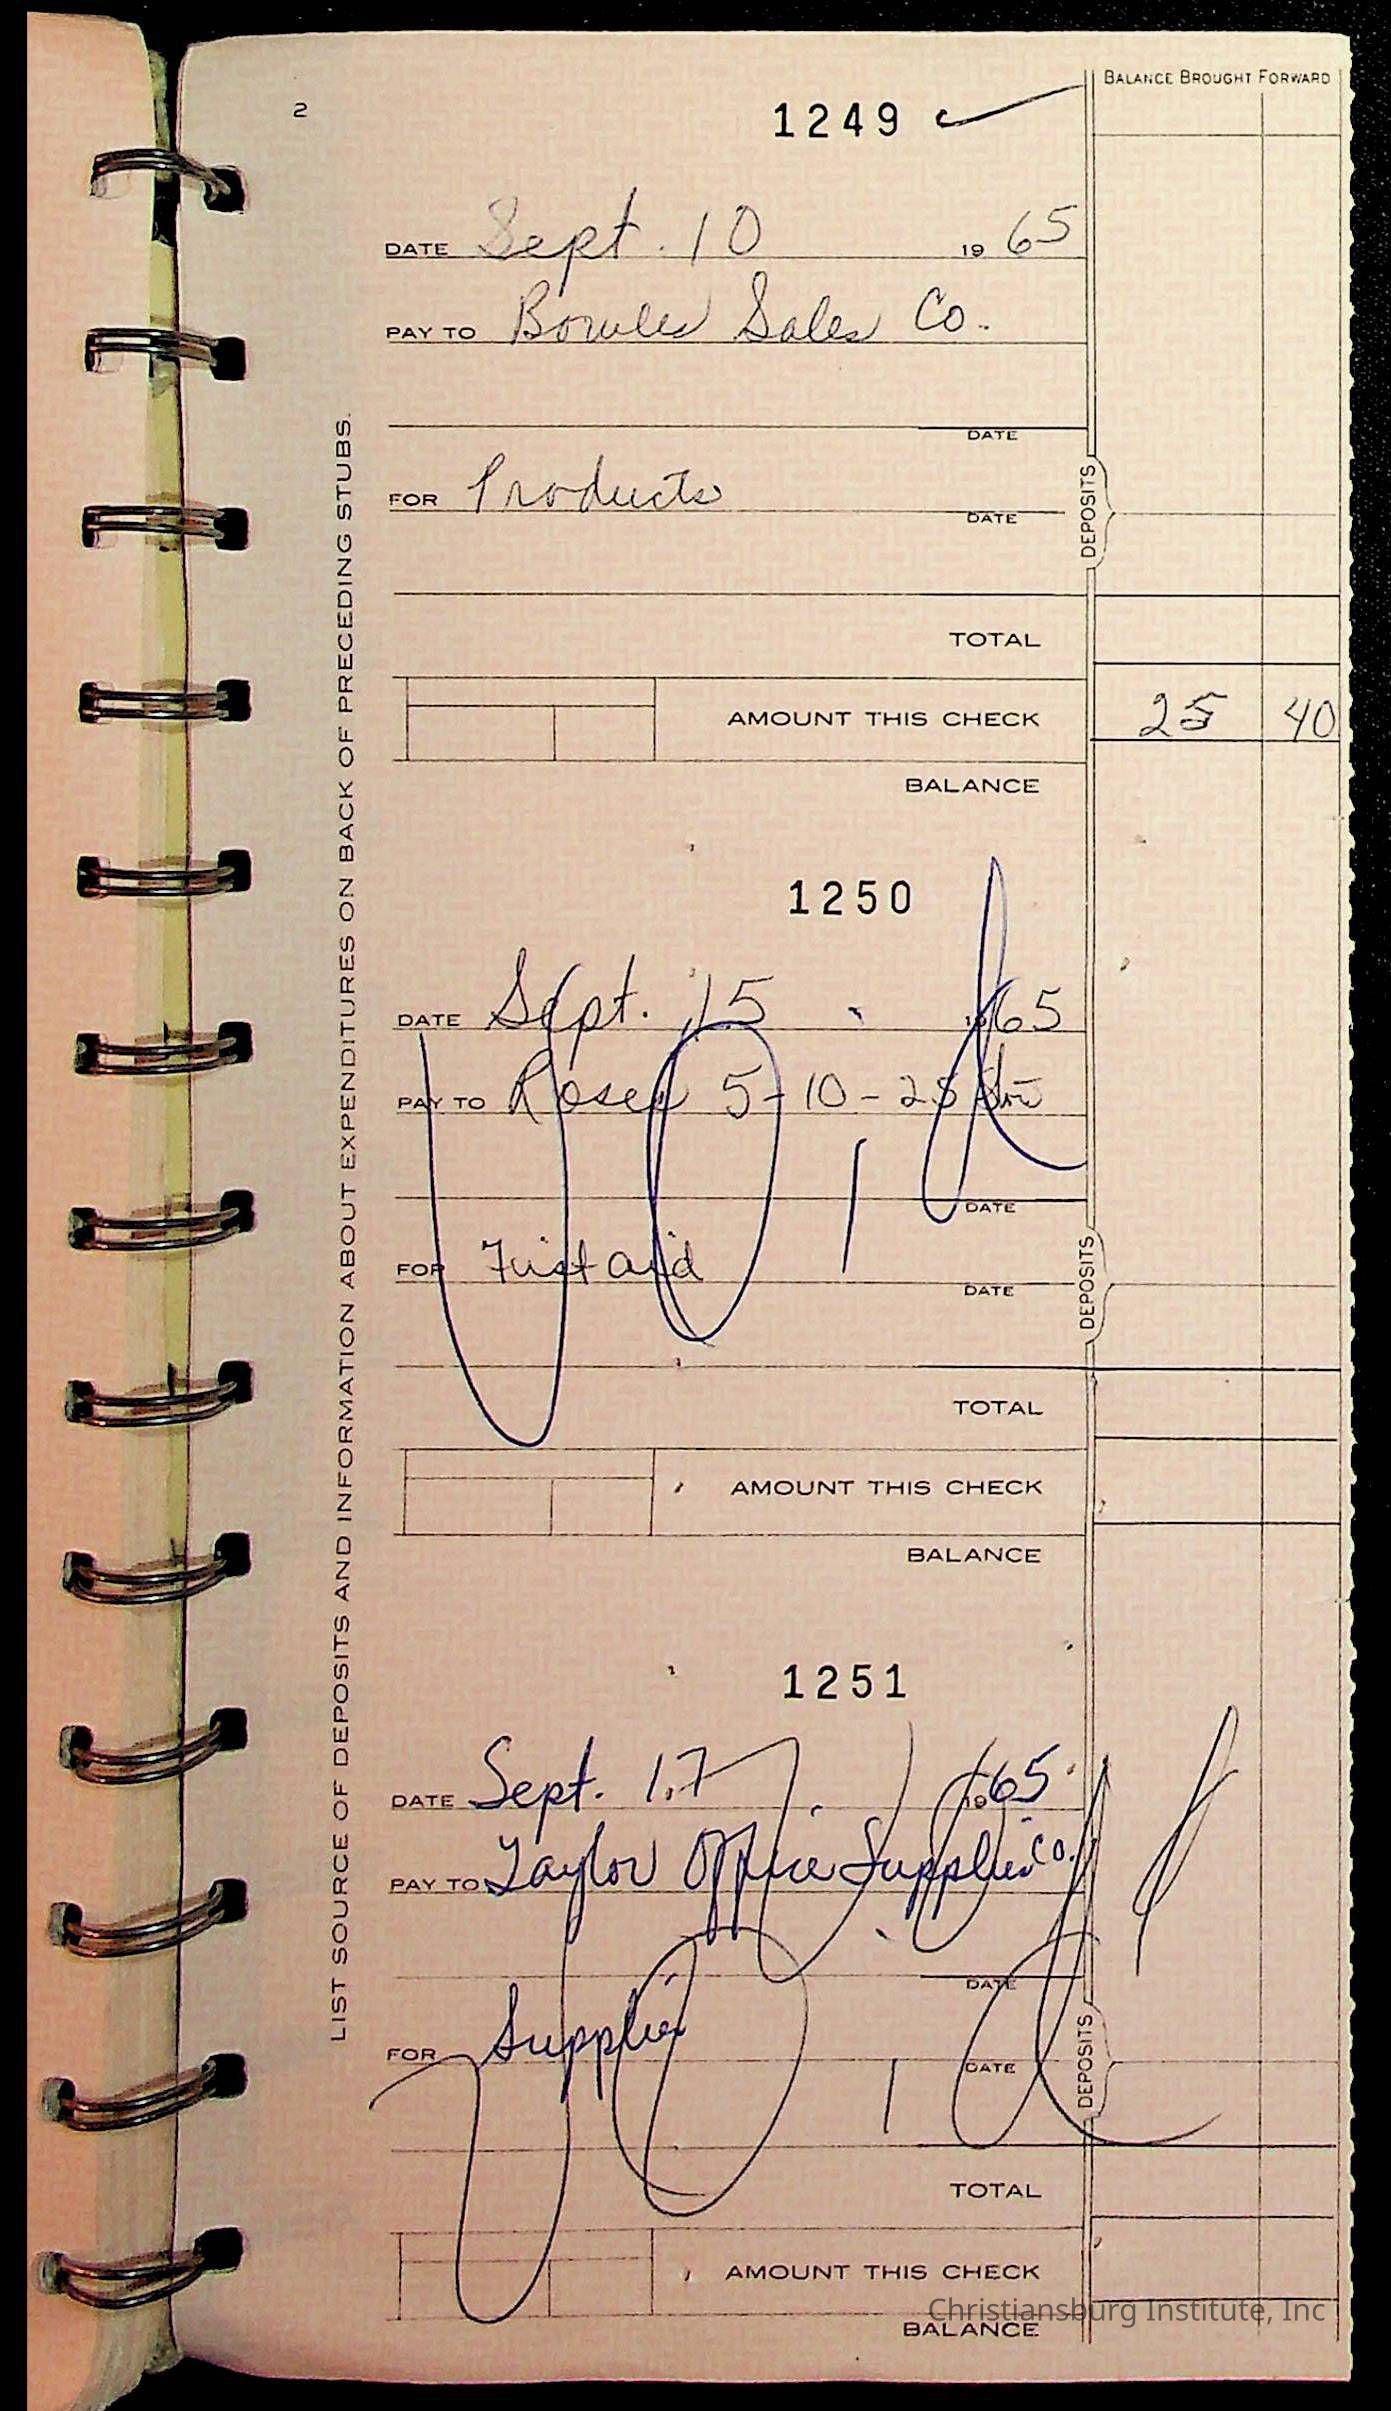 BALANCE BROUGHT FORWARD
2
1249
DATE Sept. 10 19 65
PAY TO Bowles Sales Co.
DATE
FOR Products
DATE
DEPOSITS
TOTAL
AMOUNT THIS CHECK 25 40
BALANCE
LIST SOURCE OF DEPOSITS AND INFORMATION ABOUT EXPENDITURES ON BACK OF PRECEDING STUBS.
1250
DATE Sept. 15 1965
PAY TO Roses 5-10-25
DATE
FOR First aid
DATE
DEPOSITS
TOTAL
AMOUNT THIS CHECK
BALANCE
Void
1251
DATE Sept. 17 1965
PAY TO Taylor Office Supplies Co.
DATE
FOR Supplies
DATE
DEPOSITS
TOTAL
AMOUNT THIS CHECK
BALANCE
Void
Christiansburg Institute, Inc